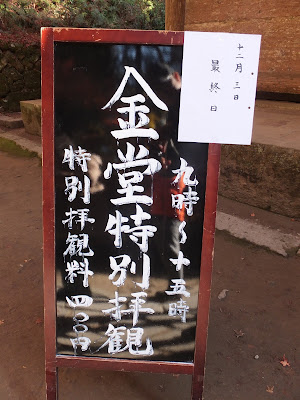 十二月三日
最終日
九時～十五時
金堂特別拝観
特別拝観料四〇〇円